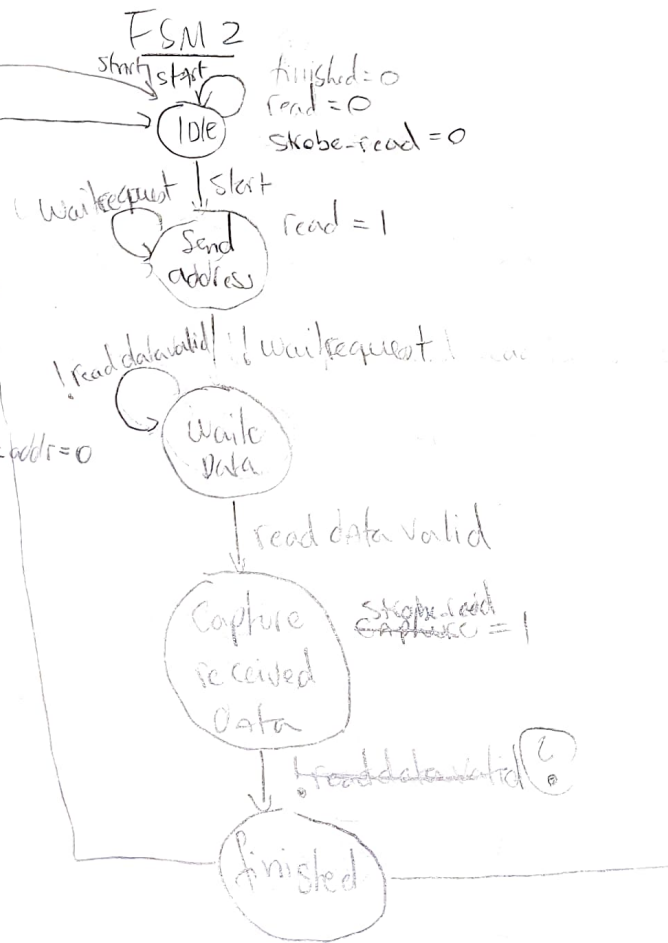 FSM 2
start
start
finished=0
read=0
IDle
skobe-read=0
start
! waitrequest
read = 1
Send
address
!readdatavalid
! waitrequest
addr=0
wait
Data
read data valid
Capture
received
Data
skobe-read
capture = 1
!readdatavalid ?
finished